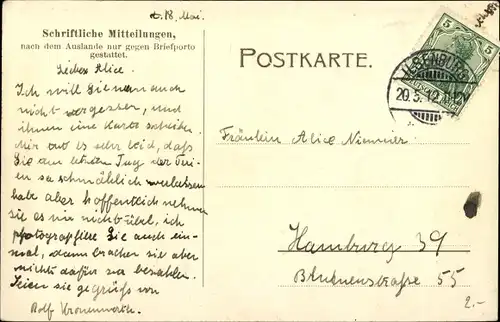 d. 18. Mai.
Schriftliche Mitteilungen,
nach dem Auslande nur gegen Briefporto
gestattet.
POSTKARTE.
5 5
ILSENBURG
20.5.12.
Liebes Alice.
Ich will Sie nun auch
nicht vergessen, und
ihnen eine Karte schreiben.
Mir tut es sehr leid, daß
Sie am letzten Tag der Feri-
en so schmählich verlassen
habe aber hoffentlich nehmen
sie es mir nicht übel, ich
photographiere Sie auch ein-
mal, dann brauchen sie aber
nichts dafür zu bezahlen.
Seien sie gegrüßt von
Rolf Kronenwerth.
Fräulein Alice Niemeier
Hamburg 39
Blumenstraße 55
2.-